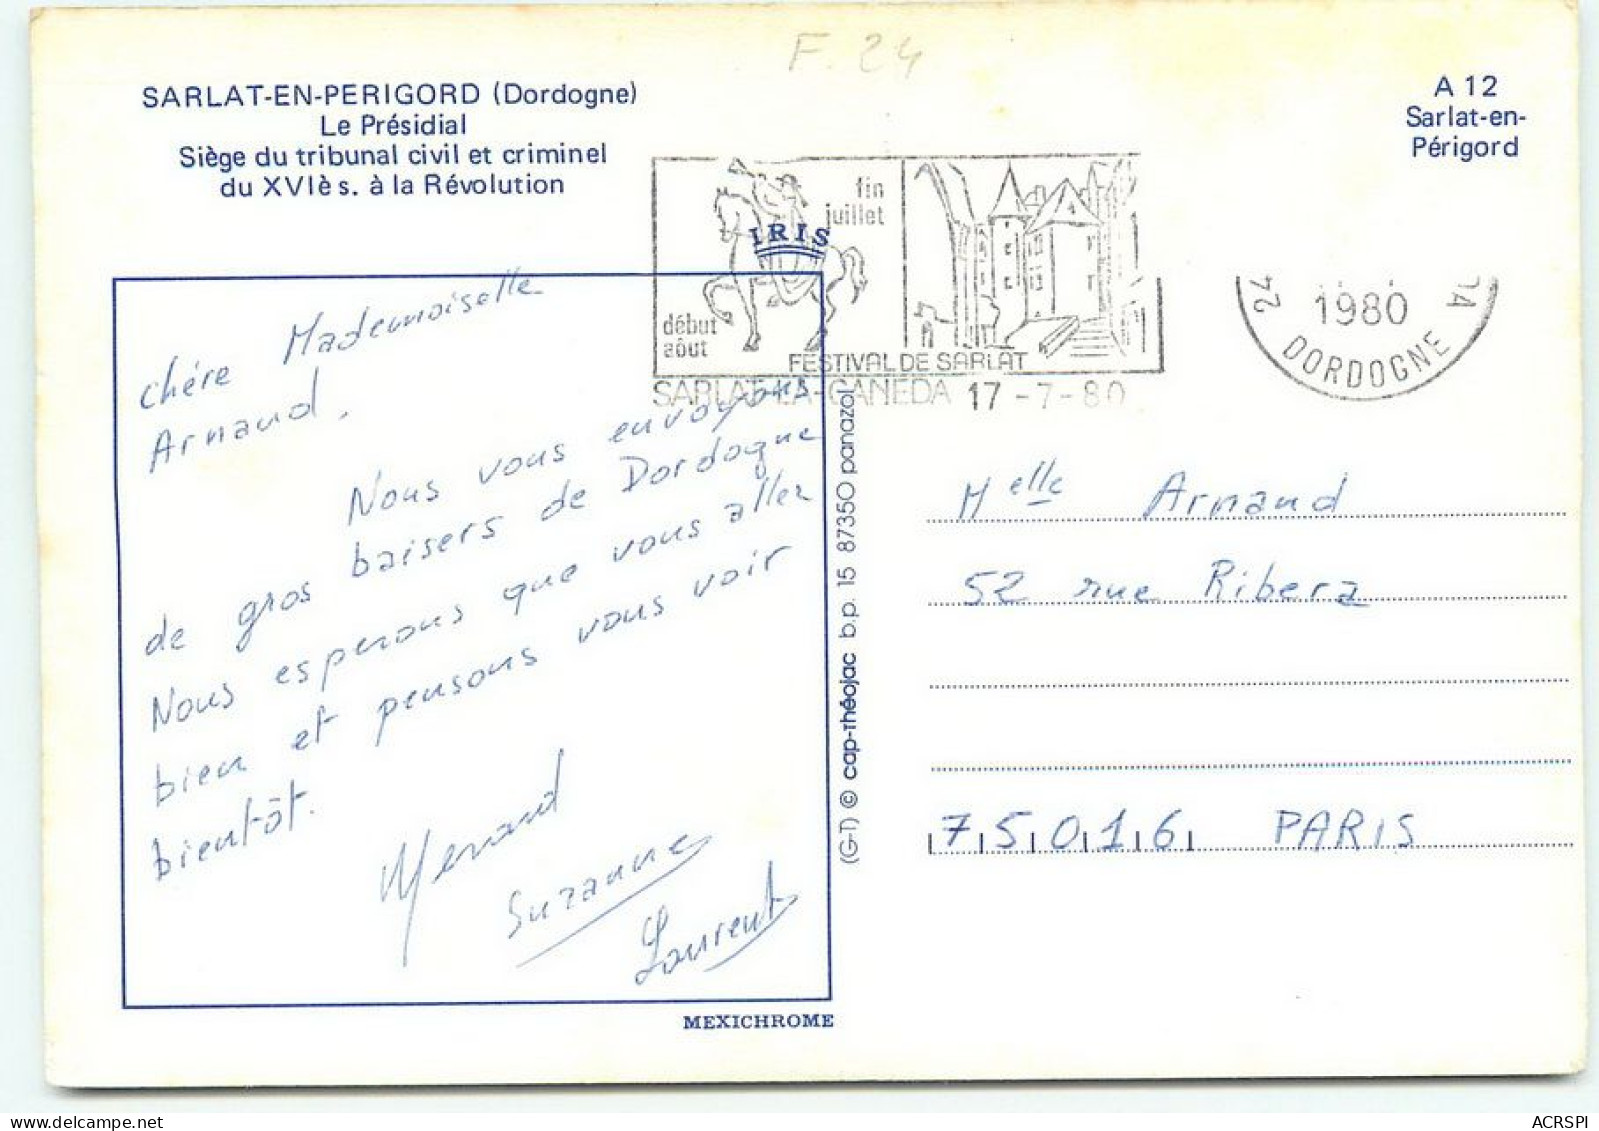 F. 24
SARLAT-EN-PERIGORD (Dordogne)
Le Présidial
Siège du tribunal civil et criminel
du XVIè s. à la Révolution
A 12
Sarlat-en-
Périgord
fin
juillet
IRIS
début
août
FESTIVAL DE SARLAT
SARLAT-LA-CANEDA 17-7-80
24
1980
DORDOGNE
chére Mademoiselle
Arnaud.
Nous vous envoyons
de gros baisers de Dordogne
Nous esperons que vous aller
bien et pensons vous voir
bientôt.
Suzanne
Laurent
MEXICHROME
(G-T) © cap-théojac b.p. 15 87350 panazol
Melle Arnaud
52 rue Ribera
75016 PARIS
ACRSPI